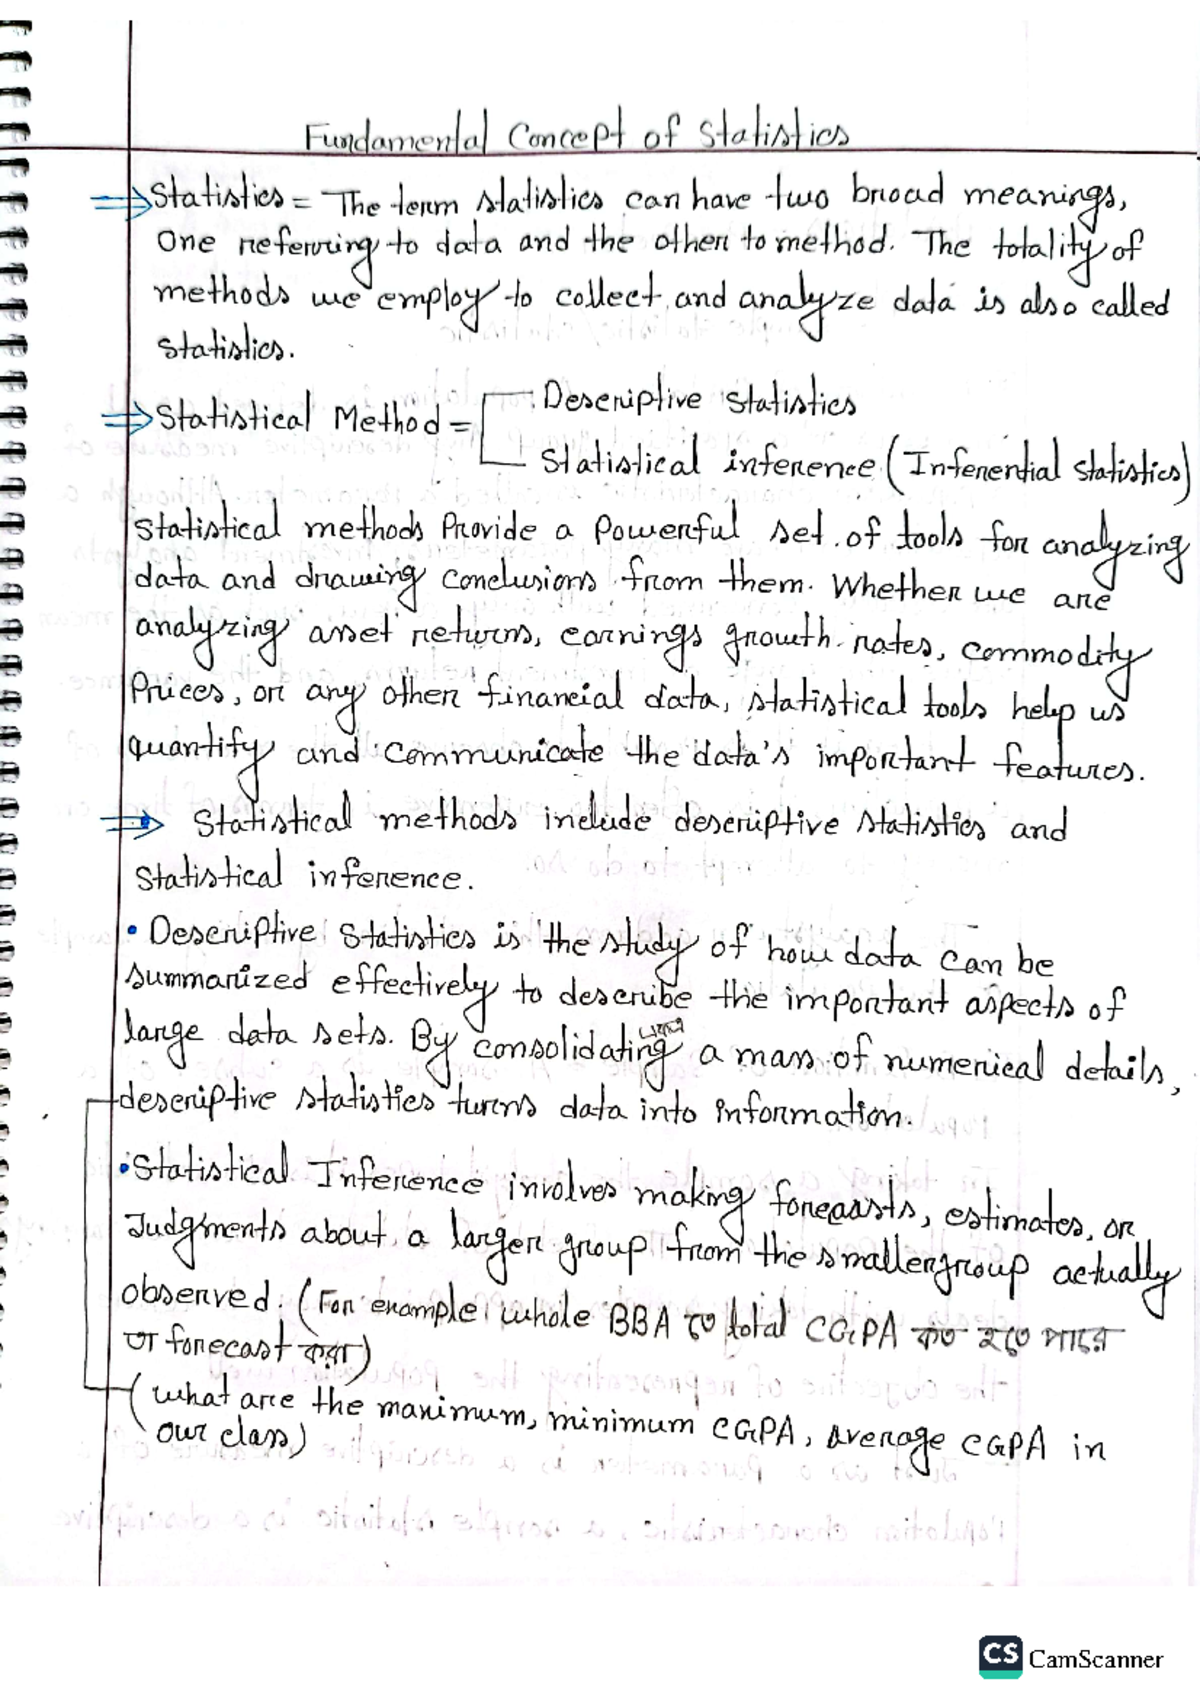 Fundamental Concept of Statistics
⇒ Statistics = The term statistics can have two broad meanings,
One referring to data and the other to method. The totality of
methods we employ to collect and analyze data is also called
Statistics.
⇒ Statistical Method = Descriptive Statistics
Statistical inference (Inferential Statistics)
Statistical methods Provide a Powerful set of tools for analyzing
data and drawing Conclusions from them. Whether we are
analyzing asset returns, earnings growth rates, commodity
Prices, or any other financial data, statistical tools help us
quantify and communicate the data's important features.
⇒ Statistical methods include descriptive statistics and
Statistical inference.
• Descriptive Statistics is the study of how data can be
summarized effectively to describe the important aspects of
large data sets. By consolidating a mass of numerical details,
descriptive statistics turns data into information.
• Statistical Inference involves making forecasts, estimates, or
Judgments about a larger group from the smallergroup actually
observed. (For example whole BBA তে total CGPA কত হতে পারে
তা forecast করা)
(what are the maximum, minimum CGPA, average CGPA in
our class)
CS CamScanner